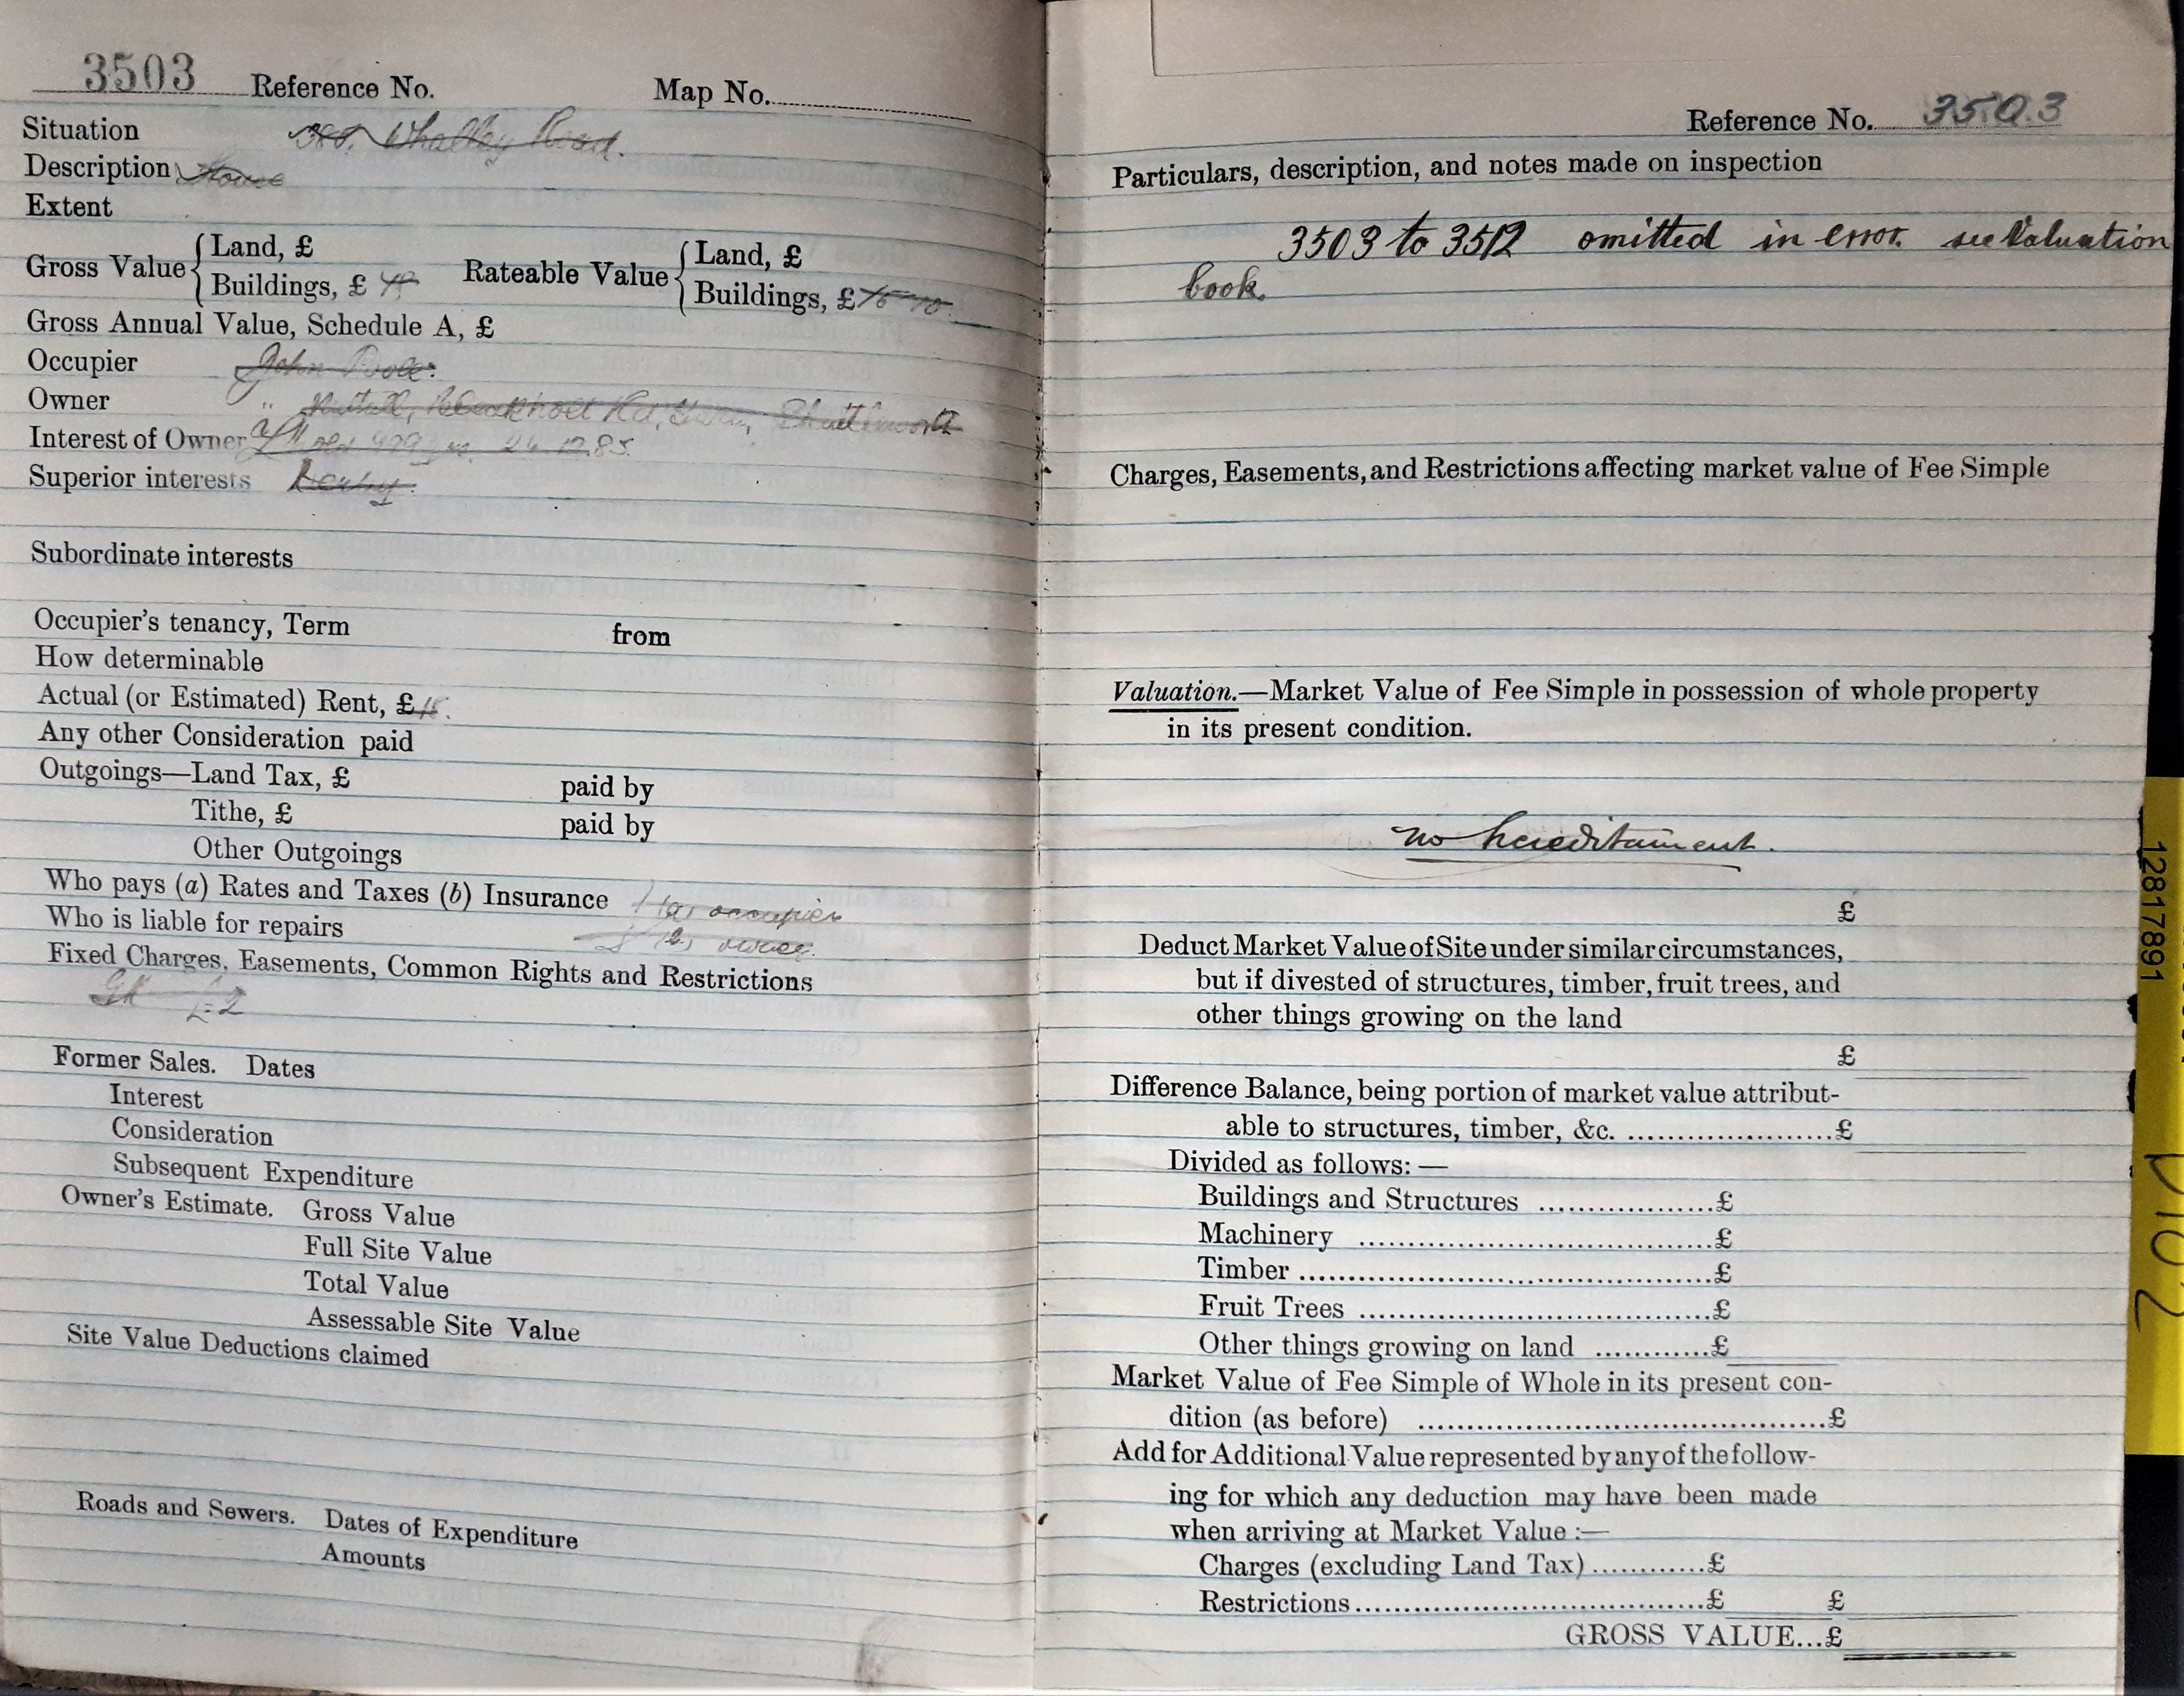 3503 Reference No. Map No.
Situation Whalley Road.
Description House
Extent
Gross Value { Land, £ Rateable Value { Land, £
Buildings, £ Buildings, £
Gross Annual Value, Schedule A, £
Occupier John Poole.
Owner " Rd, Shuttleworth
Interest of Owner 24.12.85.
Superior interests Derby.
Subordinate interests
Occupier's tenancy, Term from
How determinable
Actual (or Estimated) Rent, £
Any other Consideration paid
Outgoings—Land Tax, £ paid by
Tithe, £ paid by
Other Outgoings
Who pays (a) Rates and Taxes (b) Insurance (a) occupier
Who is liable for repairs owner.
Fixed Charges, Easements, Common Rights and Restrictions
GR £2
Former Sales. Dates
Interest
Consideration
Subsequent Expenditure
Owner's Estimate. Gross Value
Full Site Value
Total Value
Assessable Site Value
Site Value Deductions claimed
Roads and Sewers. Dates of Expenditure
Amounts
Reference No. 3503
Particulars, description, and notes made on inspection
3503 to 3512 omitted in error. see Valuation
book.
Charges, Easements, and Restrictions affecting market value of Fee Simple
Valuation.—Market Value of Fee Simple in possession of whole property
in its present condition.
no hereditament.
£
Deduct Market Value of Site under similar circumstances,
but if divested of structures, timber, fruit trees, and
other things growing on the land
£
Difference Balance, being portion of market value attribut-
able to structures, timber, &c. ......................£
Divided as follows: —
Buildings and Structures ..................£
Machinery .....................................£
Timber ...........................................£
Fruit Trees .....................................£
Other things growing on land ............£
Market Value of Fee Simple of Whole in its present con-
dition (as before) ...........................................£
Add for Additional Value represented by any of the follow-
ing for which any deduction may have been made
when arriving at Market Value :—
Charges (excluding Land Tax) ............£
Restrictions .....................................£ £
GROSS VALUE...£
12817891